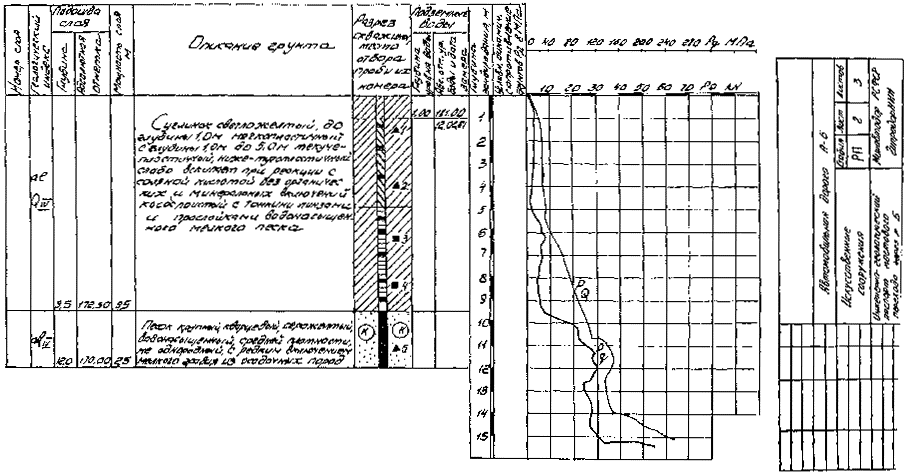 Номер слоя
Геологический индекс
Подошва слоя
Глубина
Абсолютная отметка
Мощность слоя м
Описание грунта
Разрез скважины, место отбора проб и их номера
Подземные воды
Глубина
Глубина зондирования, м
0 40 80 120 160 200 240 280 Рд МПа
0 10 20 30 40 50 60 70 80 РQ кН
1,00 181,00
12.02.81
Суглинок светложелтый, до
глубины 1,0м мягкопластичный
с глубины 1,0м до 5,0м текуче-
пластичный, ниже-тугопластичный
слабо вскипает при реакции с
соляной кислотой без органичес-
ких и минеральных включений
косослоистый с тонкими линзами
и прослойками водонасыщен-
ного мелкого песка
ae
QIII
9,5 172,50 9,5
Песок крупный кварцевый, серожелтый,
водонасыщенный, средней плотности,
не однородный, с редким включением
мелкого гравия из осадочных пород
alIV
12,0 170,00 2,5
К К
1
2
3
4
5
1
2
3
4
5
6
7
8
9
10
11
12
13
14
15
P
Q
Автомобильная дорога А-Б
Искусственные сооружения
Стадия Лист Листов
РП 2 3
Инженерно-геологический
паспорт мостового
перехода через р. Б
Минавтодор РСФСР
Гипродорнии